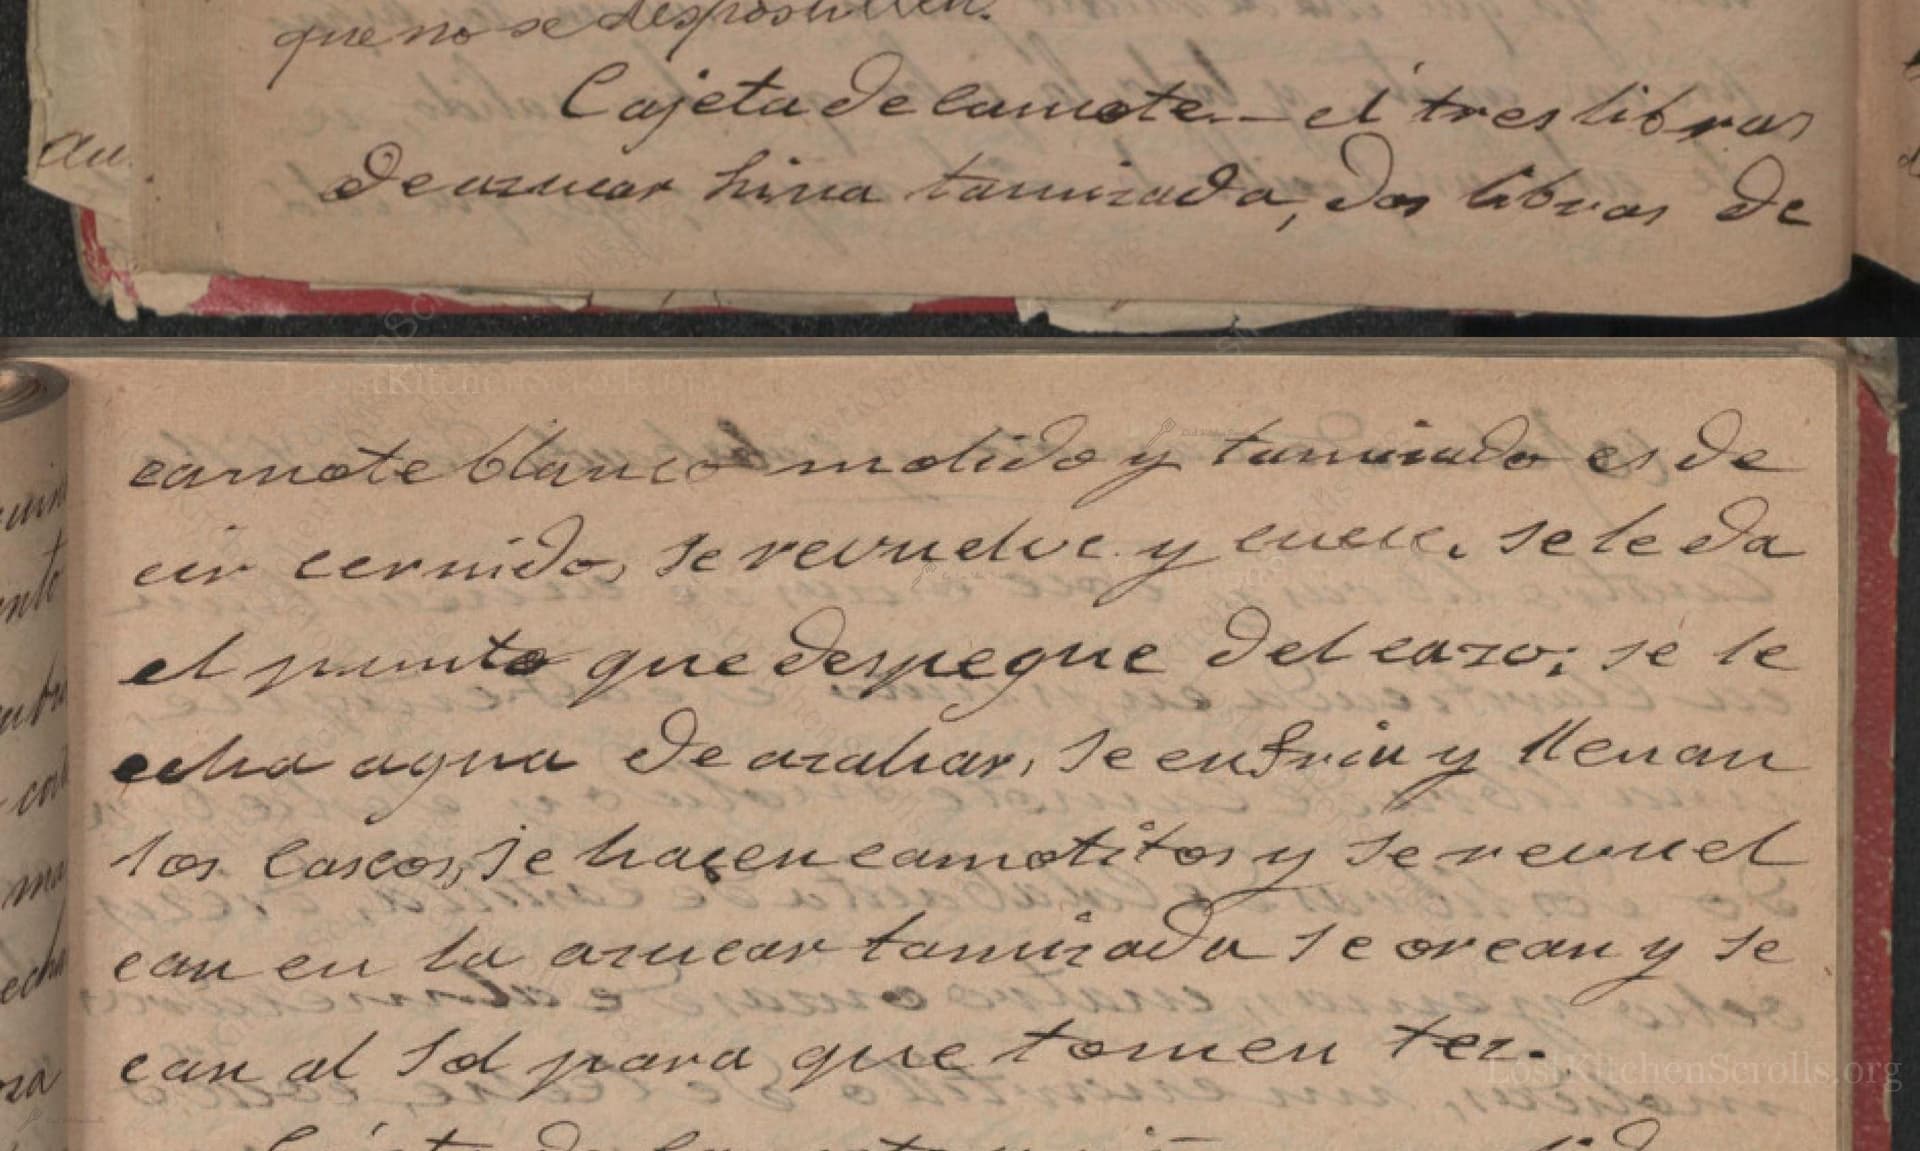 que no se desportillen.
Cajeta de Camote.— el tres libras
de azucar hina tamizada, dos libras de
camote blanco molido y tamizado es de
cir cernido, se revuelve y cuece. se le da
el punto que despegue del cazo; se le
echa agua de azahar, se enfria y llenan
los Cascos, se hacen camotitos y se revuel
can en la azucar tamizada se orean y se
can al sol para que tomen tez.
LostKitchenScrolls.org